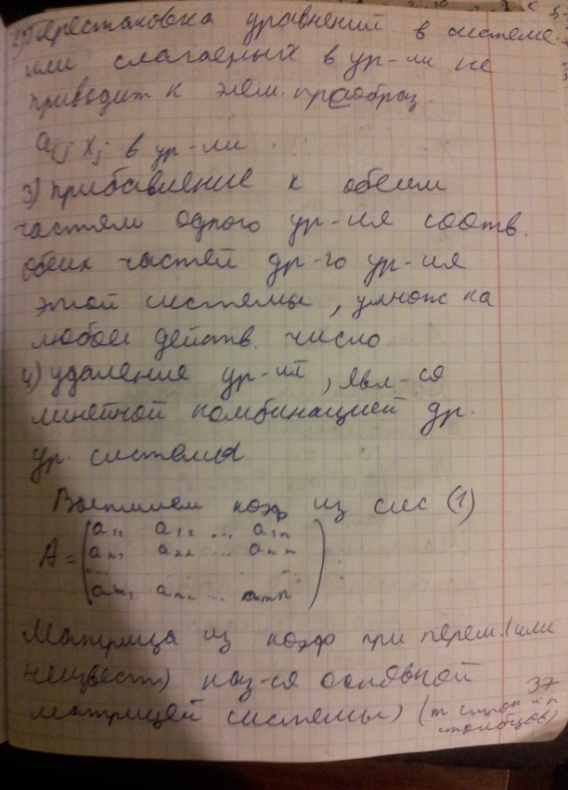 2) Перестановка уравнений в системе
или слагаемых в ур-ии не
приводит к элем. преобраз.
aij xj в ур-ии
3) прибавление к обеим
частям одного ур-ия соотв.
обеих частей др-го ур-ия
этой системы, умнож на
любое действ. число
4) удаление ур-ий, явл-ся
линейной комбинацией др.
ур. системы
Выпишем коэф из сис (1)
a11 a12 ... a1n
A = a21 a22 ... a2n
... ...
am1 am2 ... amn
Матрица из коэф при перем. (или
неизвест) наз-ся основной
матрицей системы) (m строк и n
столбцов)
37